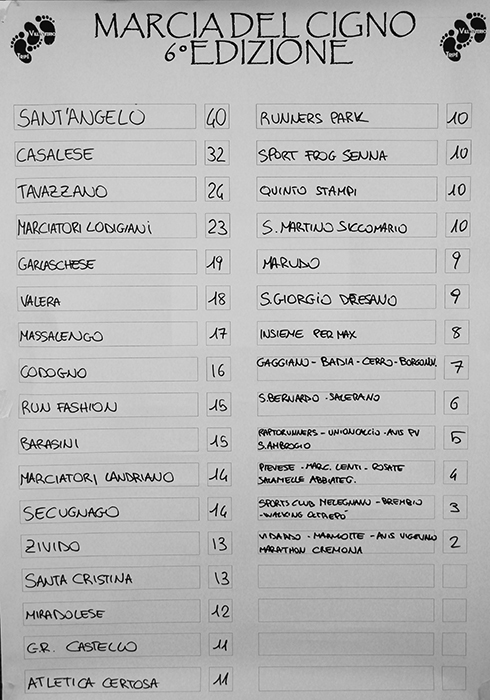 MARCIA DEL CIGNO
6° EDIZIONE
SANT'ANGELO 40
CASALESE 32
TAVAZZANO 24
MARCIATORI LODIGIANI 23
GARLASCHESE 19
VALERA 18
MASSALENGO 17
CODOGNO 16
RUN FASHION 15
BARASINI 15
MARCIATORI LANDRIANO 14
SECUGNAGO 14
ZIVIDO 13
SANTA CRISTINA 13
MIRADOLESE 12
G.R. CASTELLO 11
ATLETICA CERTOSA 11
RUNNERS PARK 10
SPORT FROG SENNA 10
QUINTO STAMPI 10
S. MARTINO SICCOMARIO 10
MARUDO 9
S. GIORGIO DRESANO 9
INSIEME PER MAX 8
GAGGIANO - BADIA - CERRO - 7
S. BERNARDO - SALERANO 6
RAPTORUNNERS - UNIONCALCIO - AVIS PV 5
S. AMBROGIO
PIEVESE - MARC. LENTI - ROSATE 4
SALAMELLE ABBIATEG.
SPORTS CLUB MELEGNANO - BREMBIO 3
- WALKING OLTREPÒ
VIDARDO - MARMOTTE - AVIS VIGEVANO 2
MARATHON CREMONA